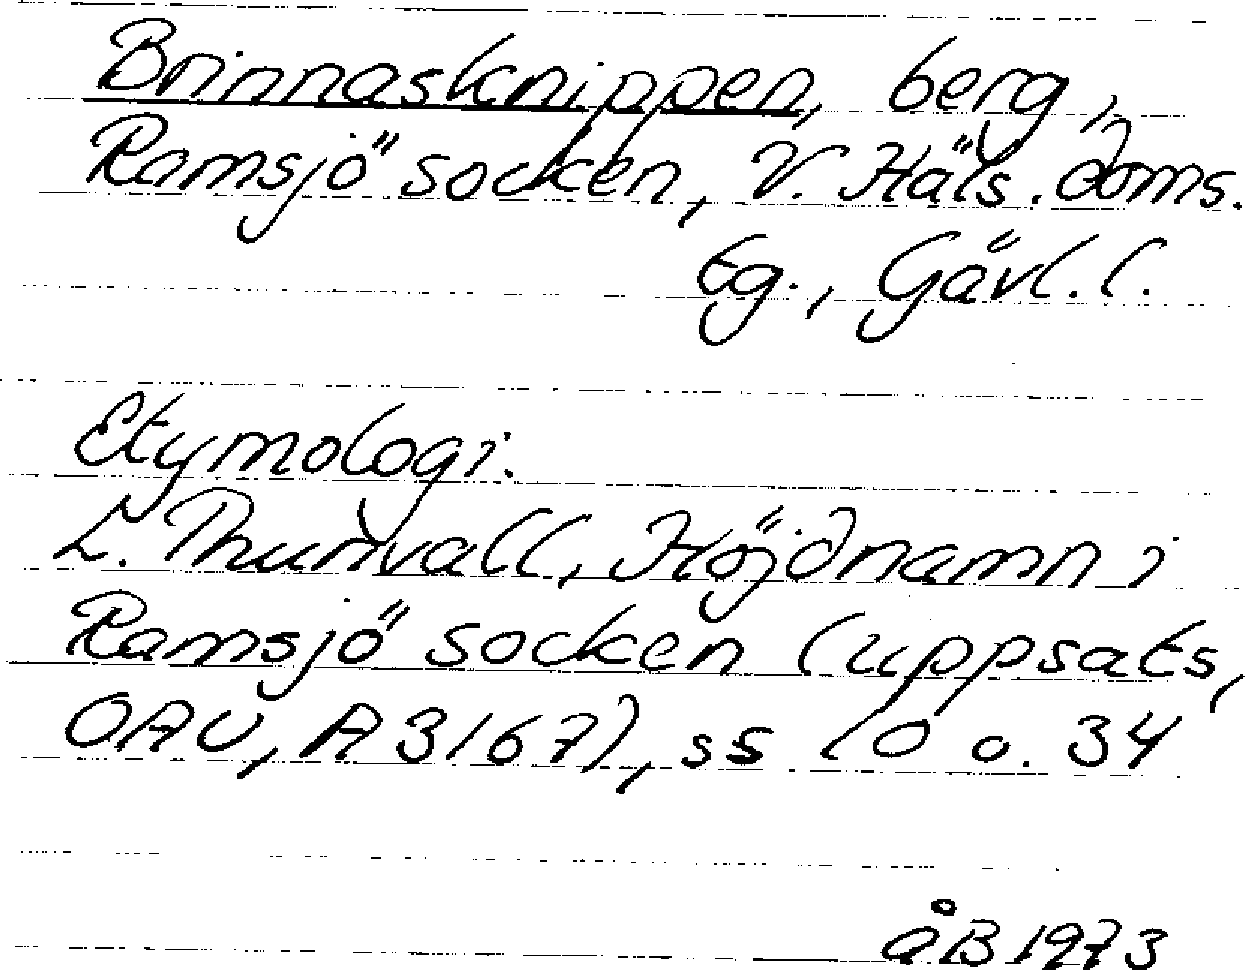 Brinnasknippen, berg,
Ramsjö socken, V. Häls. doms.
Eg., Gävl. l.
Etymologi:
L. Thunvall, Höjdnamn i
Ramsjö socken (uppsats,
OAU, A 3167), ss 10 o. 34
åB 1973